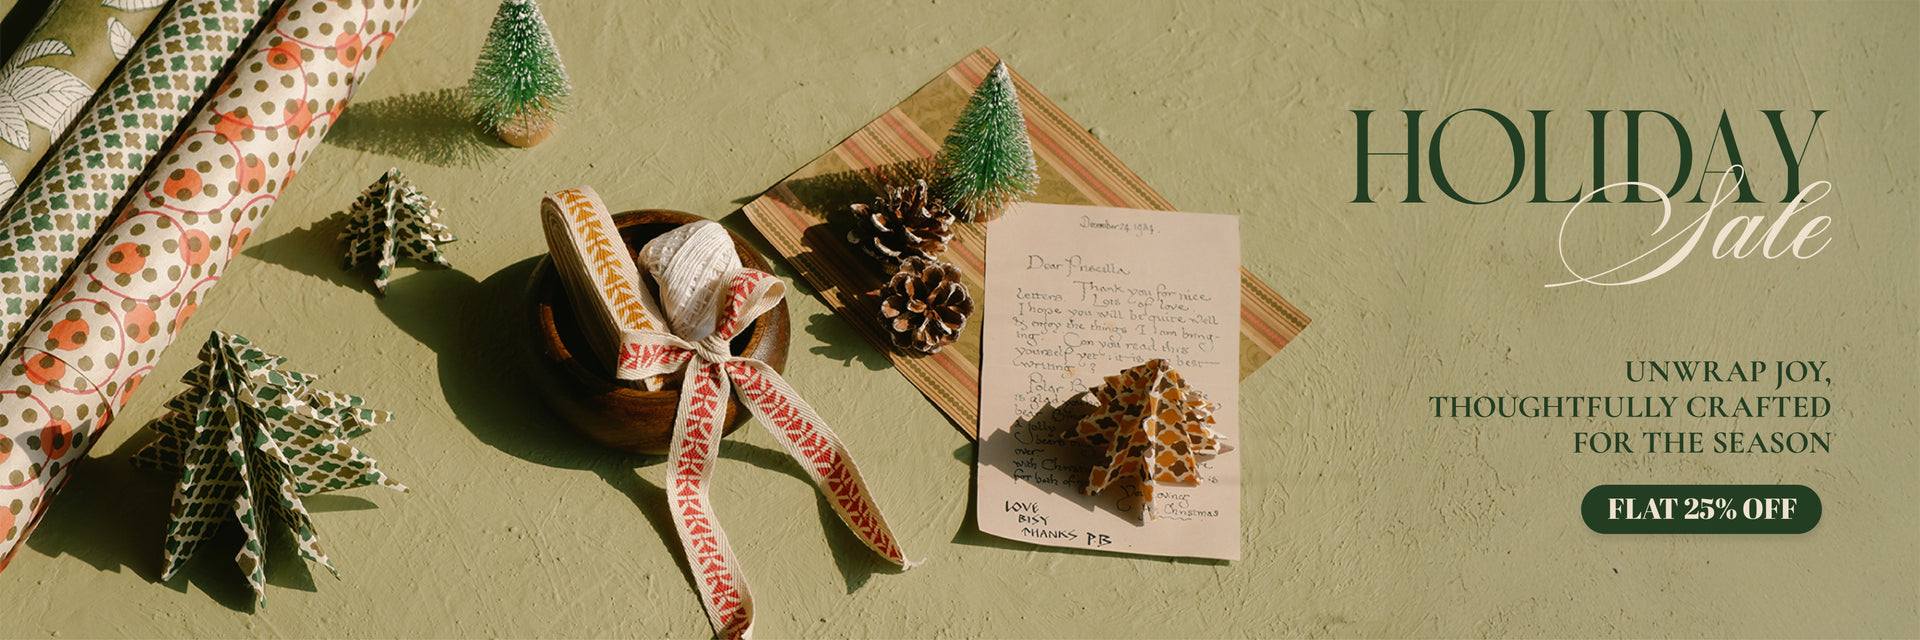 HOLIDAY
Sale
UNWRAP JOY,
THOUGHTFULLY CRAFTED
FOR THE SEASON
FLAT 25% OFF
Dear Priscilla
Thank you for nice
letters. Lots of love.
I hope you will be quite well
& enjoy the things I am bring-
ing. Can you read this
yourself yet: it is my best
writing?
Polar B
is glad
over
with Christmas
is
Christmas
LOVE
BISY
THANKS P.B